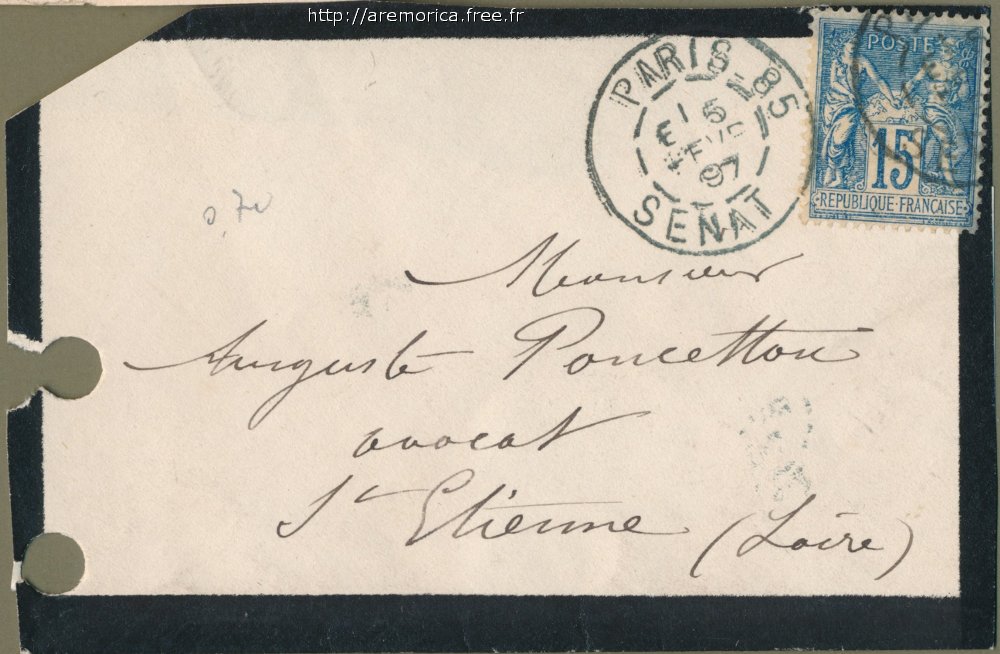 http://aremorica.free.fr
PARIS 85
15
FEVR
97
SENAT
POSTES
15
REPUBLIQUE FRANÇAISE
Monsieur
Auguste Poncetton
avocat
St Etienne (Loire)